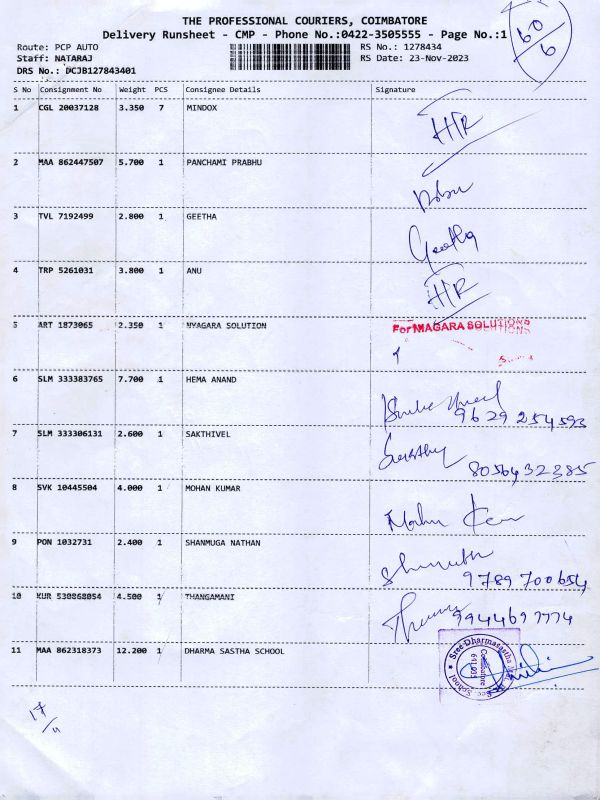 THE PROFESSIONAL COURIERS, COIMBATORE
Delivery Runsheet - CMP - Phone No.:0422-3505555 - Page No.:1
60
6
Route: PCP AUTO
RS No.: 1278434
Staff: NATARAJ
RS Date: 23-Nov-2023
DRS No.: DCJB127843401
S No Consignment No Weight PCS Consignee Details Signature
1 CGL 20037128 3.350 7 MINDOX HR
2 MAA 862447507 5.700 1 PANCHAMI PRABHU
3 TVL 7192499 2.800 1 GEETHA Geetha
4 TRP 5261031 3.800 1 ANU HR
5 ART 1873065 2.350 1 NYAGARA SOLUTION For NIAGARA SOLUTIONS
6 SLM 333383765 7.700 1 HEMA ANAND
9629 254593
7 SLM 333306131 2.600 1 SAKTHIVEL
8056432385
8 SVK 10445504 4.000 1 MOHAN KUMAR
9 PON 1032731 2.400 1 SHANMUGA NATHAN
9789 700654
10 KUR 530868054 4.500 1 THANGAMANI
9944697774
11 MAA 862318373 12.200 1 DHARMA SASTHA SCHOOL
Sree Dharmasastha
School
Coimbatore
17
11